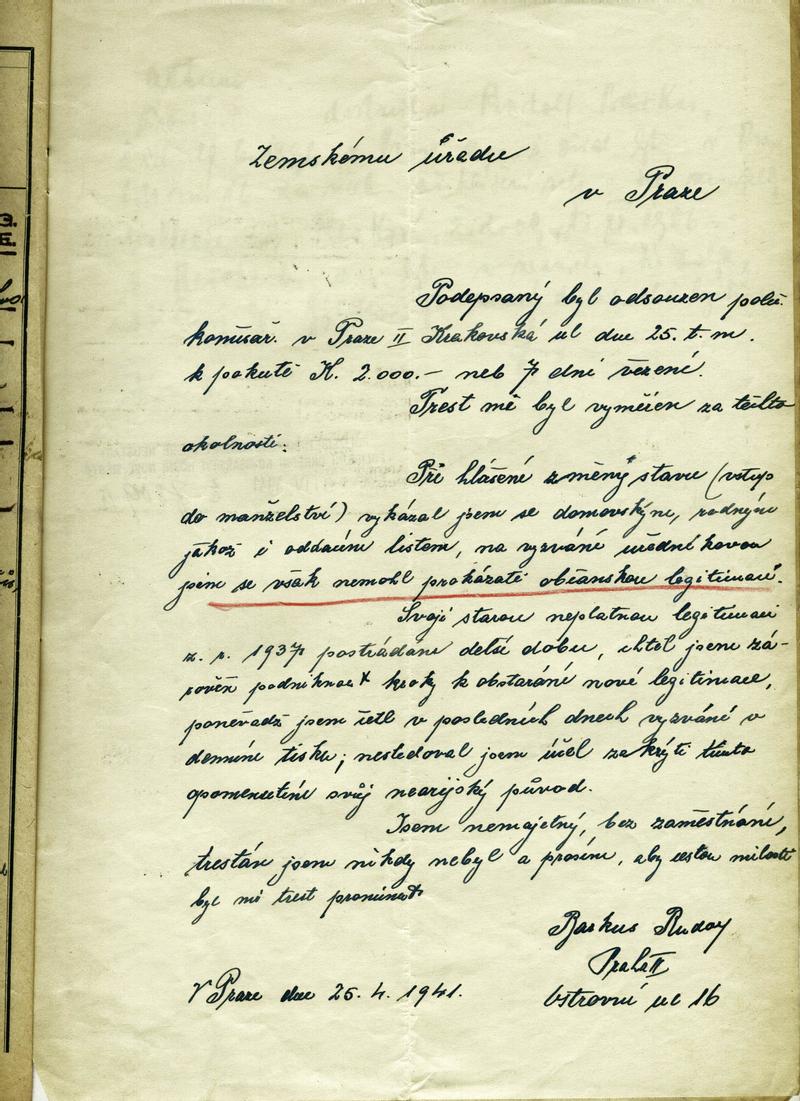 Zemskému úřadu
v Praze
Podepsaný byl odsouzen polic.
komisař. v Praze II Krakovská ul dne 25. t. m.
k pokutě K. 2.000.— neb 7 dní vězení.
Trest mě byl vyměřen za těchto
okolností:
Při hlášení změny stavu (vstup
do manželství) vykázal jsem se domovským, rodným
jakož i oddacím listem, na vyzvání úřední kovou
jsem se však nemohl prokázati občanskou legitimací.
Svoji starou neplatnou legitimaci
z. r. 1937 postrádám delší dobu, chtěl jsem zá-
roveň podniknout kroky k obstarání nové legitimace,
poněvadž jsem četl v posledních dnech vyzvání v
denním tisku; nesledoval jsem účel zakrýti tímto
opomenutím svůj nearijský původ.
Jsem nemajetný, bez zaměstnání,
trestán jsem nikdy nebyl a prosím, aby cestou milosti
byl mi trest prominut
Barkus Rudolf
Praha II
V Praze dne 25. 4. 1941.
Ostrovní ul 16